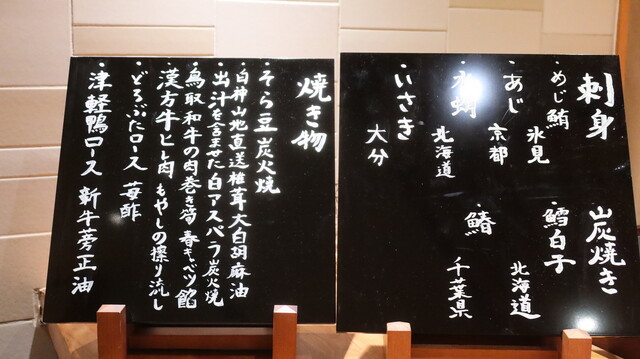 刺身
めじ鮪 氷見
あじ 京都
水蛸 北海道
いさき 大分
炭焼き
鱈白子 北海道
鰆 千葉県
焼き物
・そら豆炭火焼
・白神山地直送椎茸大白胡麻油
・出汁を含ませた白アスパラ炭火焼
・鳥取和牛の肉巻き筍 春キャベツ餡
・漢方牛ヒレ肉 もやしの擦り流し
・どろぶたロース 苺酢
・津軽鴨ロース 新牛蒡正油